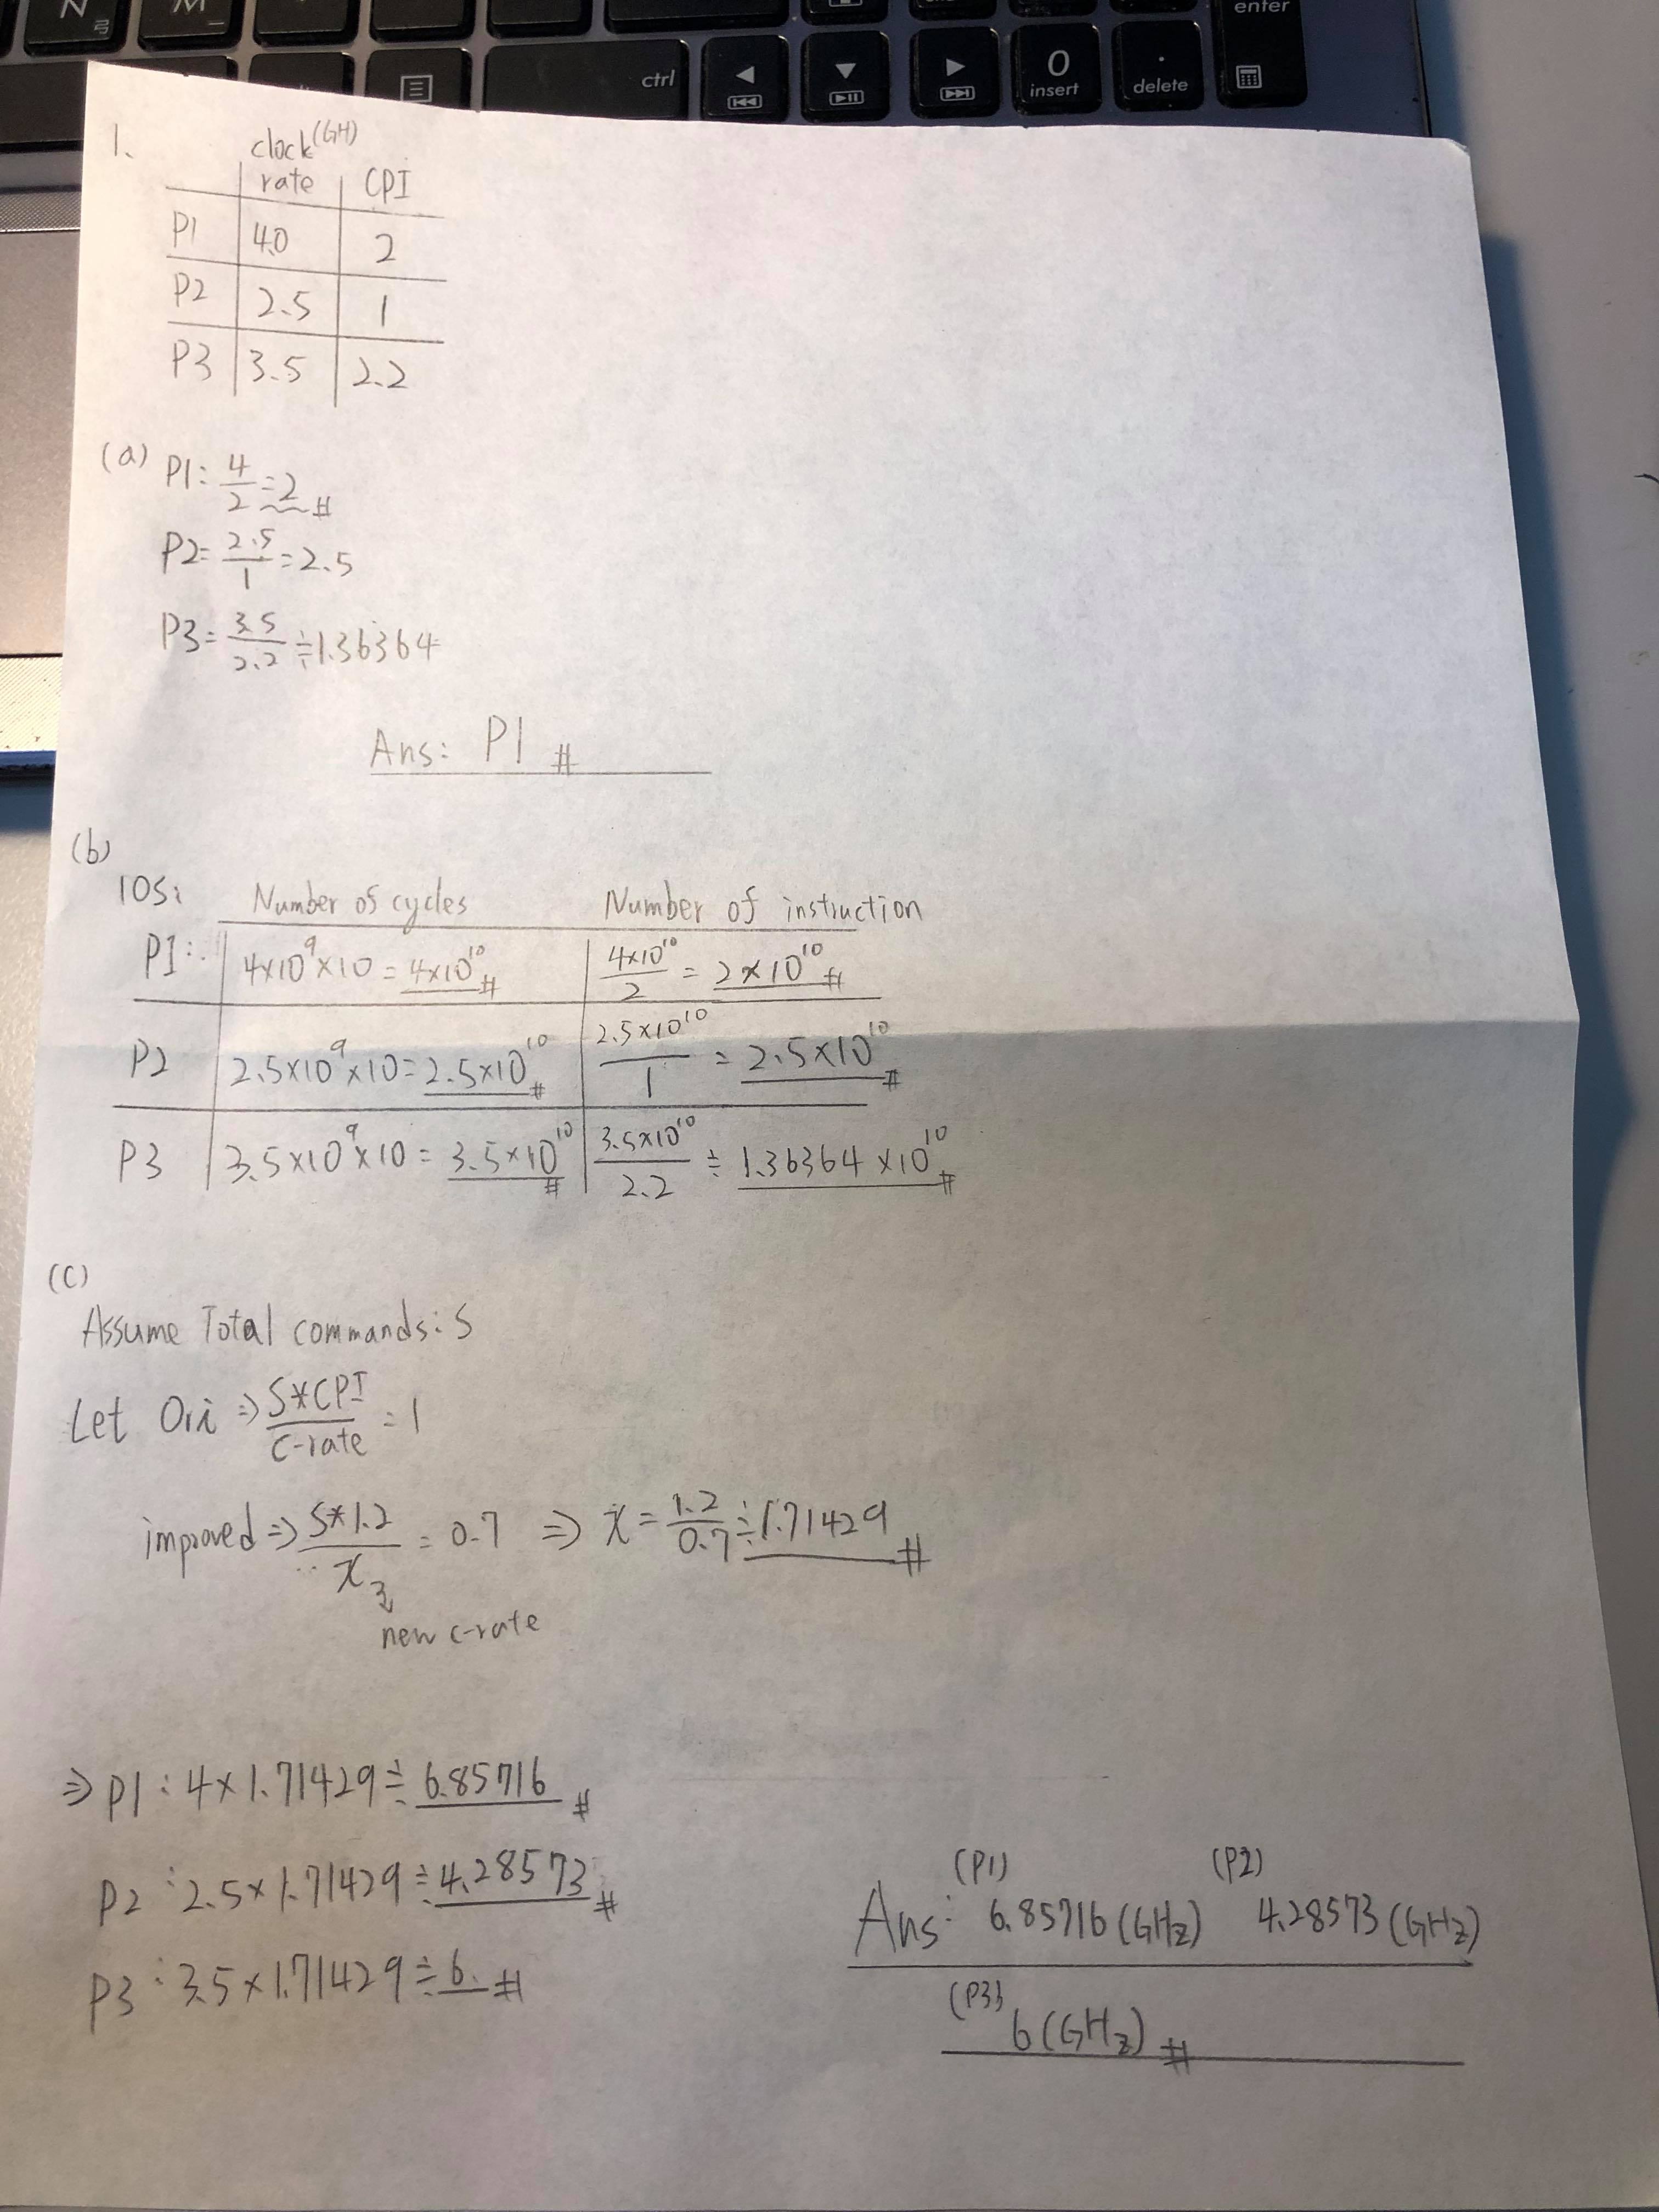 N 弓
M
ctrl
0
insert
.
delete
enter
1.
clock (GH)
rate CPI
P1 4.0 2
P2 2.5 1
P3 3.5 2.2
(a) P1: 4/2 = 2 #
P2= 2.5/1 = 2.5
P3= 3.5/2.2 ≒ 1.36364
Ans: P1 #
(b)
10s: Number of cycles Number of instruction
P1: 4×10^9×10 = 4×10^10 # 4×10^10/2 = 2×10^10 #
P2 2.5×10^9×10 = 2.5×10^10 # 2.5×10^10/1 = 2.5×10^10 #
P3 3.5×10^9×10 = 3.5×10^10 # 3.5×10^10/2.2 ≒ 1.36364×10^10 #
(c)
Assume Total commands: S
Let Ori ⇒ S*CPI/c-rate = 1
improved ⇒ S*1.2/x = 0.7 ⇒ x = 1.2/0.7 ≒ 1.71429 #
new c-rate
⇒ P1: 4×1.71429 ≒ 6.85716 #
P2: 2.5×1.71429 ≒ 4.28573 #
P3: 3.5×1.71429 ≒ 6. #
(P1) (P2)
Ans: 6.85716 (GHz) 4.28573 (GHz)
(P3) 6 (GHz) #